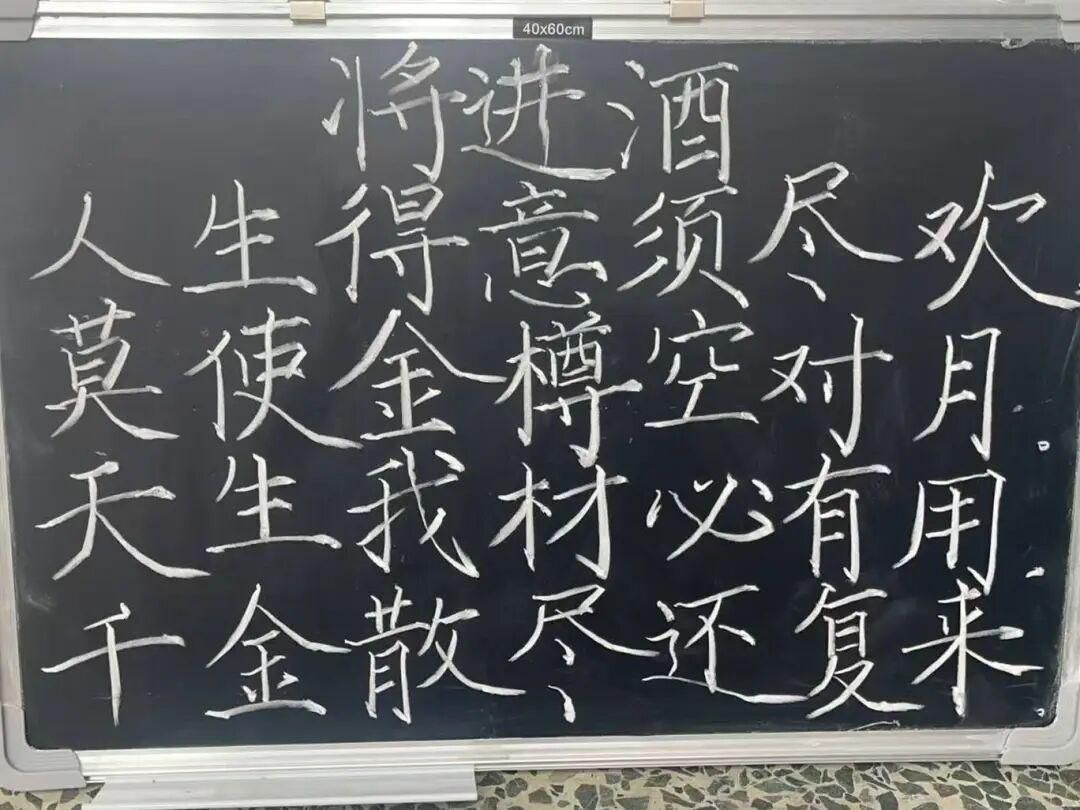 40x60cm
将进酒
人生得意须尽欢
莫使金樽空对月。
天生我材必有用.
千金散尽还复来。